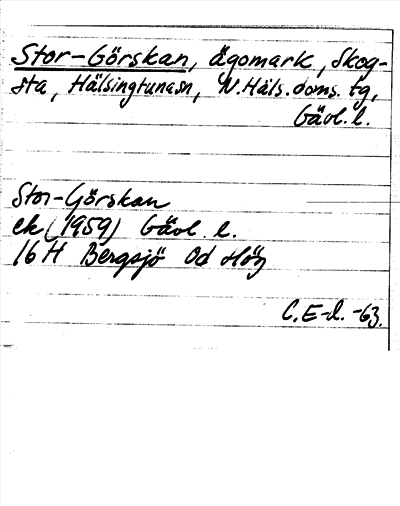 Stor-Görskan, ägomark, Skog-
sta, Hälsingtunasn, N.Häls.doms.tg,
Gävl.l.
Stor-Görskan
ek (1959) Gävl. l.
16 H Bergsjö Od Hög
C.E-l. -63.